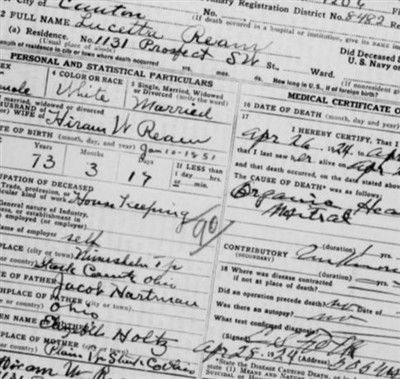 Canton
Primary Registration District No. 8482
2 FULL NAME Lucetta Ream
(If death occurred in a hospital or institution, give its name
(a) Residence. No. 1131 Prospect SW St., Ward.
(Usual place of abode)
Did Deceased
U. S. Navy or
Length of residence in city or town where death occurred yrs. mos. ds. How long in U. S., if of foreign birth?
PERSONAL AND STATISTICAL PARTICULARS
MEDICAL CERTIFICATE O
4 COLOR OR RACE
5 Single, Married, Widowed
or Divorced (write the word)
male White Married
16 DATE OF DEATH (month, day and year)
married, widowed or divorced
HUSBAND
WIFE of Hiram W Ream
17
I HEREBY CERTIFY, That I
Apr 26 1924, to Apr
that I last saw h er alive on Apr
and that death occurred, on the date stated above
TE OF BIRTH (month, day, and year) Jan 10-1851
Years Months Days If LESS than
1 day hrs.
or min.
73 3 17
The CAUSE OF DEATH* was as follows:
Organic Hea
Mitral
OCCUPATION OF DECEASED
Trade, profession, or
particular kind of work House keeping
90
General nature of Industry,
business, or establishment in
which employed (or employer)
(duration) yrs.
Name of employer self
CONTRIBUTORY
(SECONDARY)
(duration) yrs.
PLACE (city or town)
Stark County Ohio
18 Where was disease contracted
if not at place of death?
OF FATHER Jacob Hartman
Did an operation precede death? no Date of
BIRTHPLACE OF FATHER (city or town)
Ohio
Was there an autopsy? no
What test confirmed diagnosis?
Holtz
(Signed)
PLACE OF MOTHER (city or town)
Plain Tp Stark Co Ohio
Apr 28, 1924 (Address)
Hiram W Re
*State the DISEASE CAUSING DEATH, or in
state (1) MEANS AND NATURE